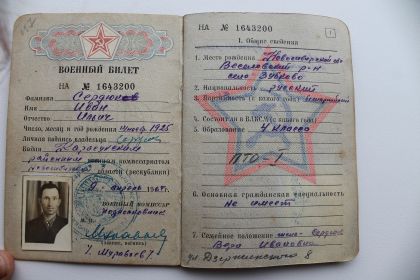 ВОЕННЫЙ БИЛЕТ
НА № 1643200
Фамилия Сердюков
Имя Иван
Отчество Ильич
Число, месяц и год рождения 1925
Личная подпись владельца
Выдан
районным
военным комиссариатом
области (республики)
1964 г.
ВОЕННЫЙ КОМИССАР
М. П.
НА № 1643200
1
I. Общие сведения
1. Место рождения Новосибирской обл
Веселовский р-н
село Зубково
2. Национальность русский
3. Партийность (с какого года)
4. Состоит ли в ВЛКСМ (с какого года)
5. Образование 4 класса
ПТО-I
6. Основная гражданская специальность
Не имеет
7. Семейное положение жена-
Вера Ивановна
ул Дзержинского 8